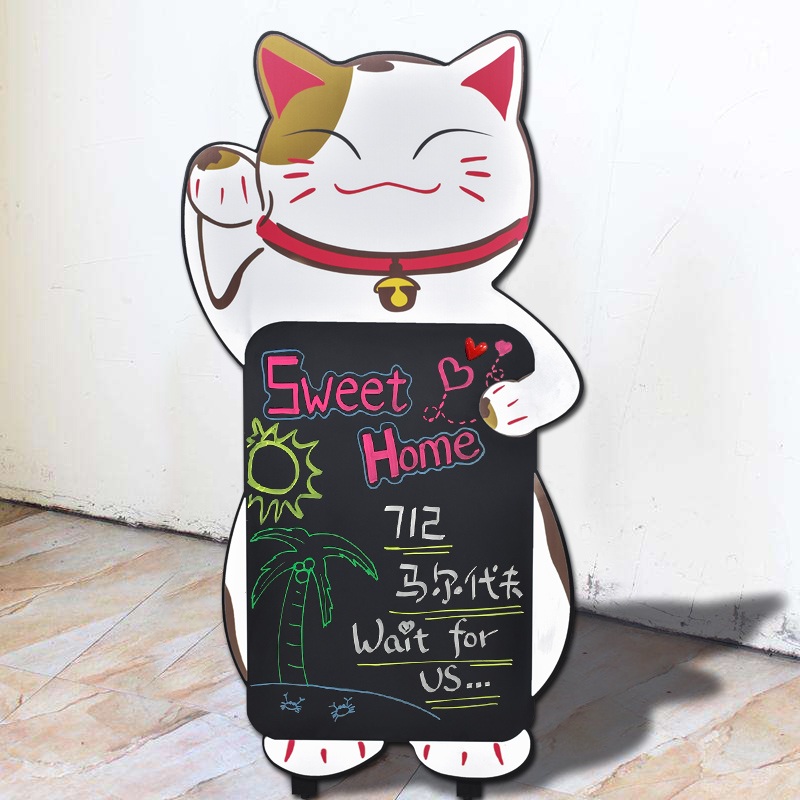 Sweet
Home
712
马尔代夫
Wait for
us...